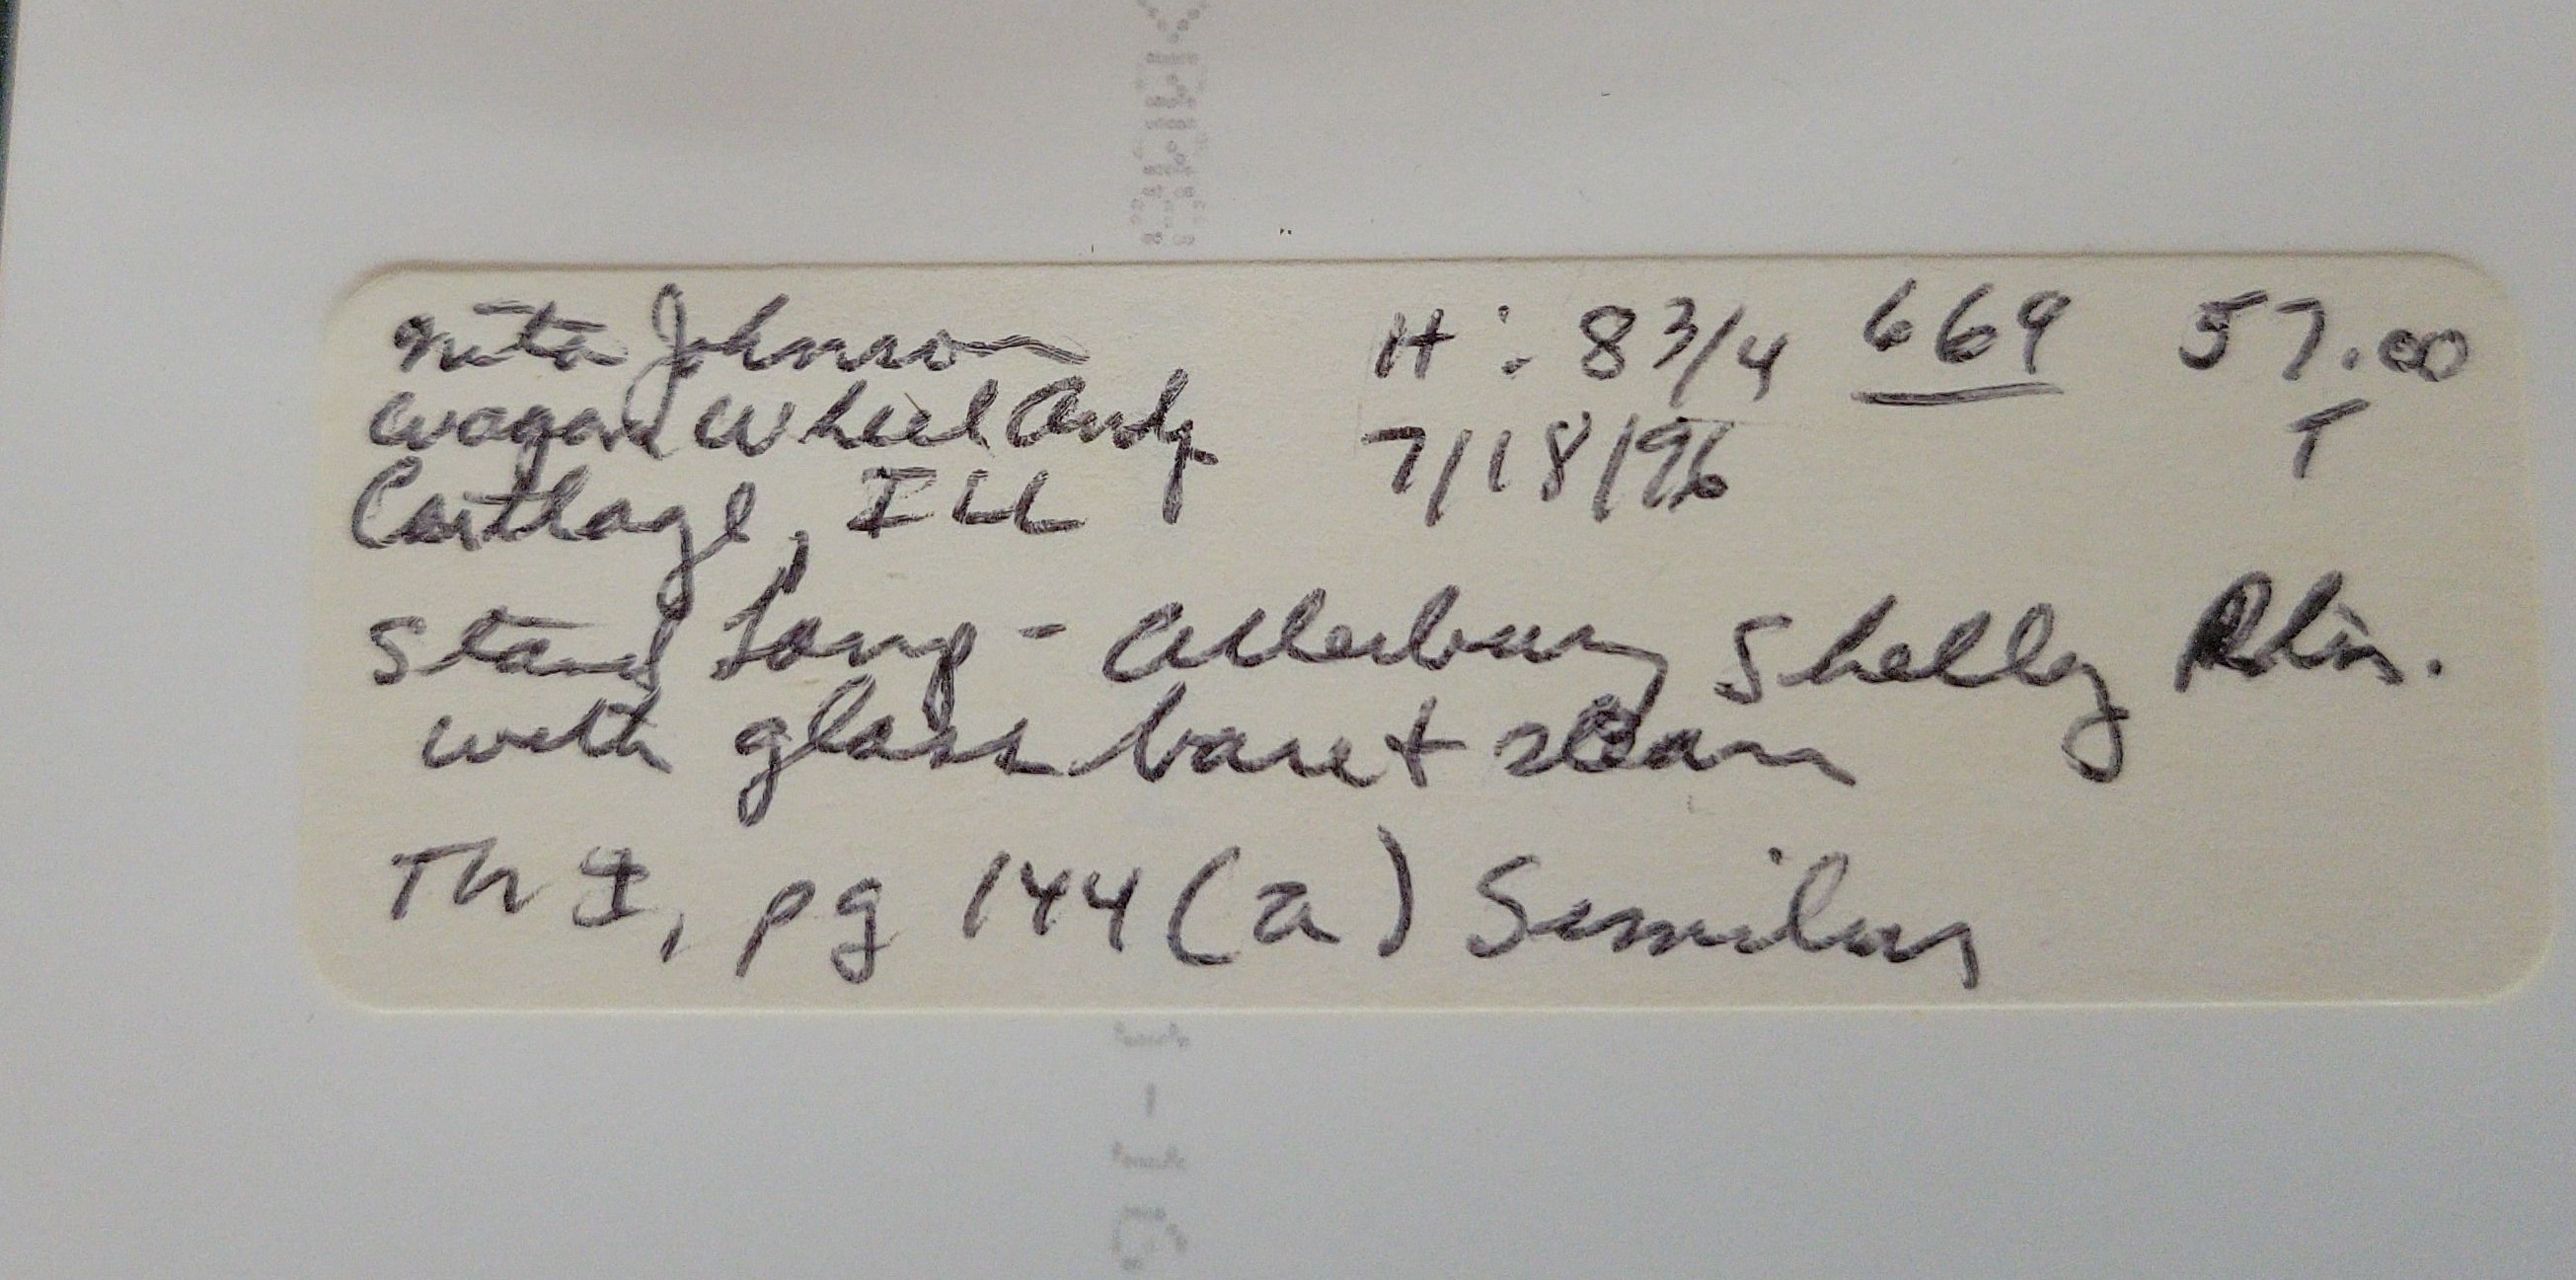 Nita Johnson H: 8 3/4 669 57.00
Wagon Wheel Antq 7/18/96 T
Carthage, ILL
Stand Lamp - Atterbury Shelly Rbn.
with glass base + stem
Th I, pg 144 (a) Similar